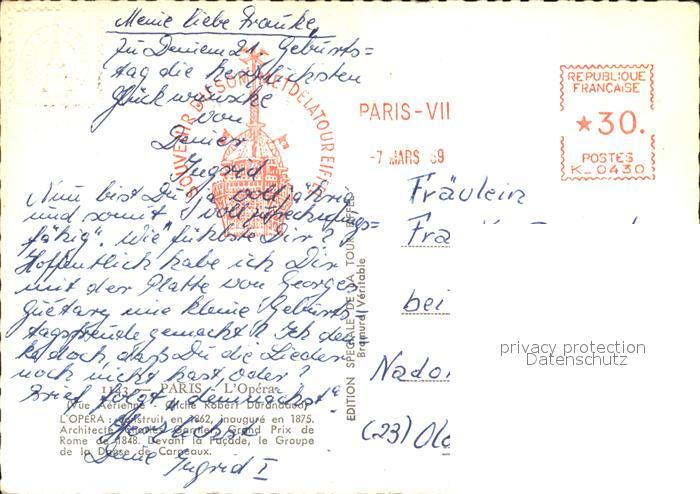 Meine liebe Frauke,
zu Deinem 21. Geburts=
tag die herzlichsten
Glückwünsche
von
Deiner
Ingrid
SOUVENIR DU SOMMET DE LA TOUR EIFFEL
PARIS-VII
-7 MARS 59
REPUBLIQUE
FRANCAISE
★30.
POSTES
K_0430
Nun bist Du ja volljährig
und somit "voll rechnungs=
fähig". Wie fühlste Dir?
Hoffentlich habe ich Dir
mit der Platte von Georges
Guétary eine kleine Geburts
tagsfreude gemacht? Ich den
ke doch, dass Du die Lieder
noch nicht hast, oder?
Brief folgt "demnächst"
Herzlichst
Deine Ingrid I
EDITION SPÉCIALE DE LA TOUR EIFFEL
Bromurd/Véritable
PARIS - L'Opéra
(Vue Aérienne - Cliché Robert Durandaud)
L'OPÉRA : Construit en 1862, inauguré en 1875.
Architecte Charles Garnier, Grand Prix de
Rome de 1848. Devant la Façade, le Groupe
de la Danse de Carpeaux.
Fräulein
Fra
bei
Nado
(23) Old
privacy protection
Datenschutz